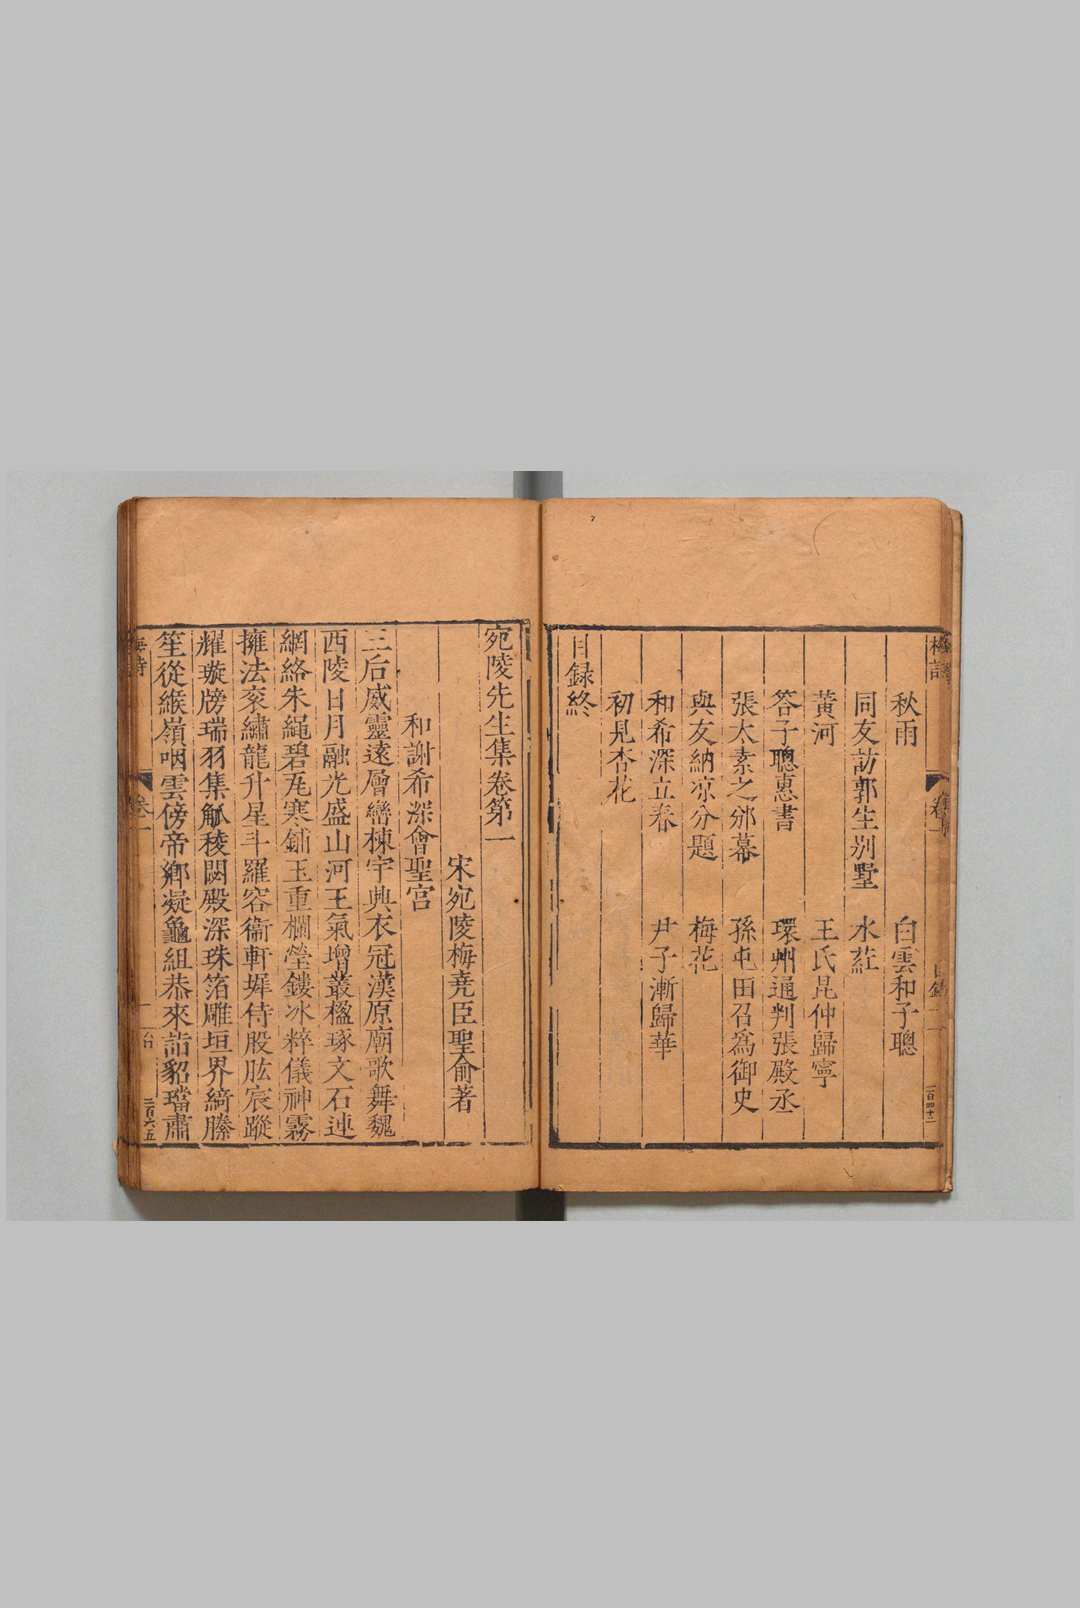 秋雨 白雲和子聰
同友訪郭生別墅 水葒
黃河 王氏昆仲歸寧
答子聰惠書 環州通判張殿丞
張太素之邠幕 孫屯田召為御史
與友納凉分題 梅花
和希深立春 尹子漸歸華
初見杏花
目録終
宛陵先生集卷第一
宋宛陵梅堯臣聖俞著
和謝希深會聖宮
三后威靈遠層巒棟宇興衣冠漢原廟歌舞魏
西陵日月融光盛山河王氣增叢楹琢文石連
網絡朱繩碧瓦寒鋪玉重欄瑩鏤冰粹儀神霧
擁法衮繡龍升星斗羅容衞軒墀侍股肱宸蹤
耀璇牓瑞羽集觚稜閟殿深珠箔雕垣界綺塍
笙從緱嶺咽雲傍帝鄉凝龜組恭來詣貂璫肅
卷一
二百六五